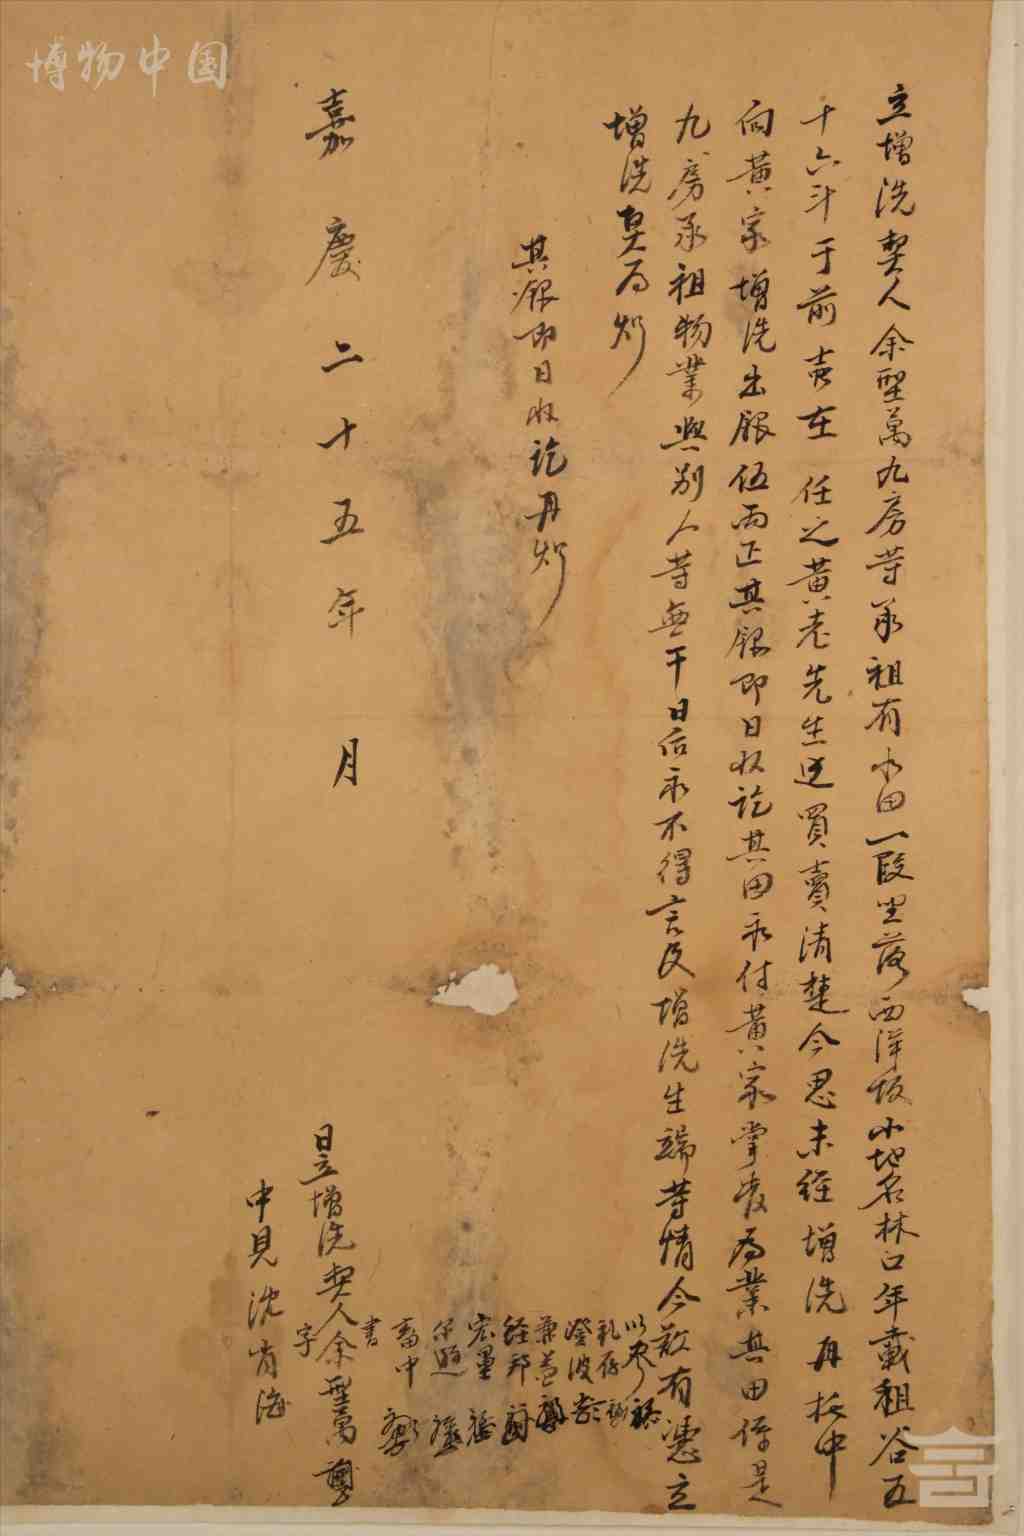 博物中国
立增洗契人余聖萬九房等承祖有水田一段坐落西洋坂小地名林口年載租谷五
十六斗于前賣在任之黄老先生边買賣清楚今思未經增洗再托中
向黄家增洗出银伍両正其银即日收訖其田永付黄家掌管為業其田係是
九房承祖物業與别人等無干日后永不得言及增洗生端等情今欲有憑立
增洗契為炤
其银即日收訖再炤
嘉慶二十五年 月
日立增洗契人余聖萬
以
礼存
澄波
兼益
经邦
宏量
畨中
書
字
中見沈